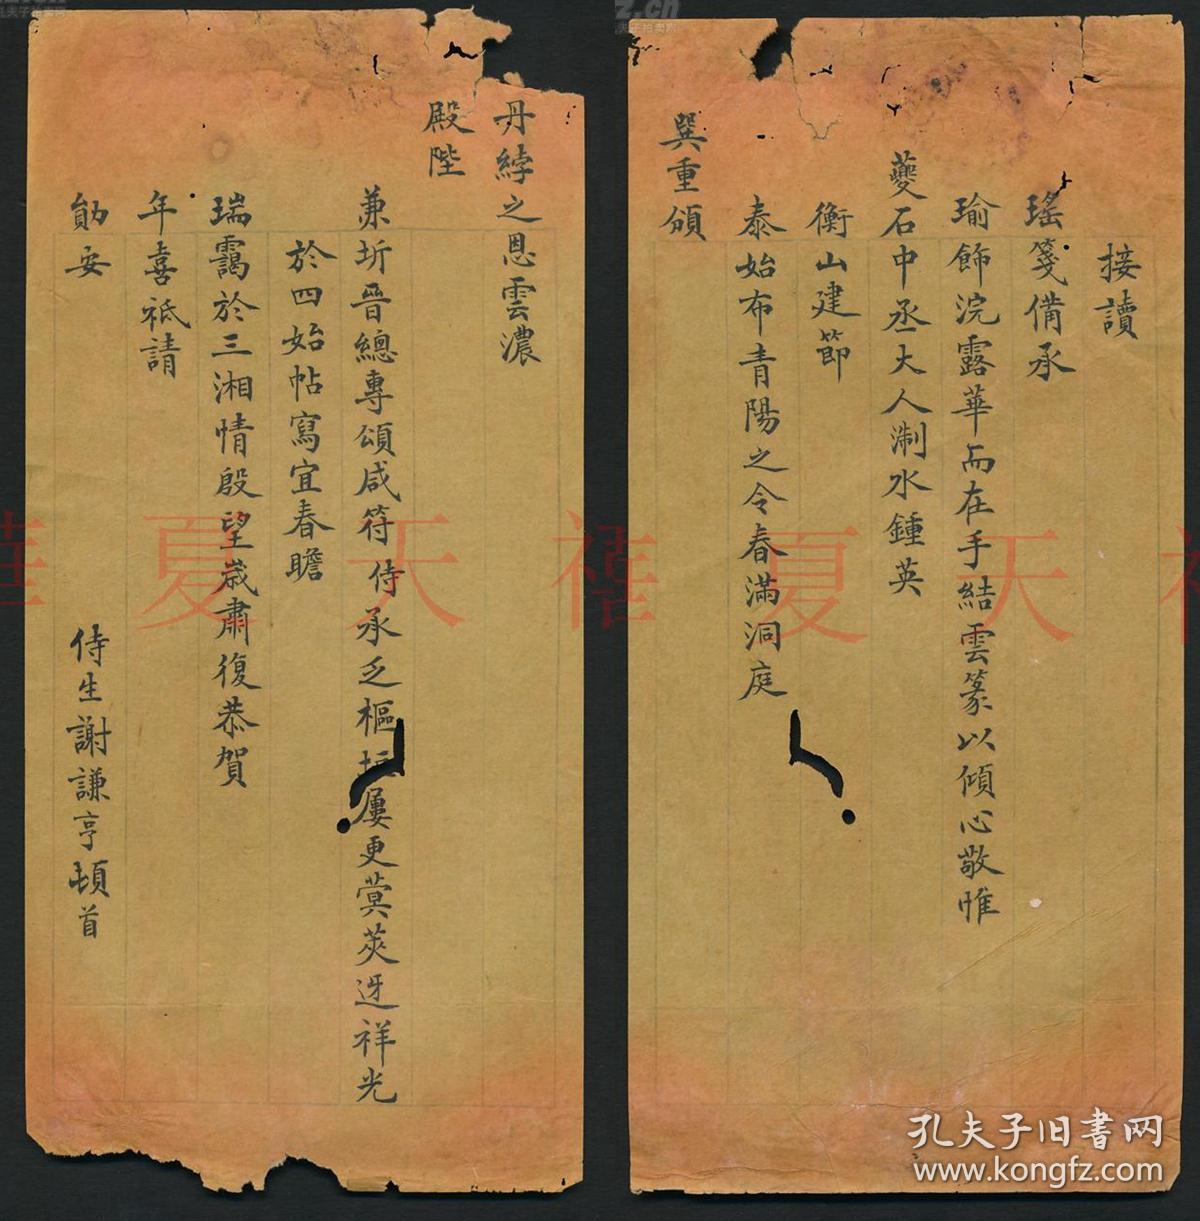 接讀
瑤箋備承
瑜飾浣露華而在手結雲篆以傾心敬惟
夔石中丞大人淛水鍾英
衡山建節
泰始布青陽之令春滿洞庭
巽重頒
丹綍之恩雲濃
殿陛
兼圻晉總專頌咸符侍承乏樞垣屢更蓂莢迓祥光
於四始帖寫宜春瞻
瑞靄於三湘情殷望歲肅復恭賀
年喜祗請
勛安
侍生謝謙亨頓首
華夏天禧
夏天禧
孔夫子旧书网
www.kongfz.com